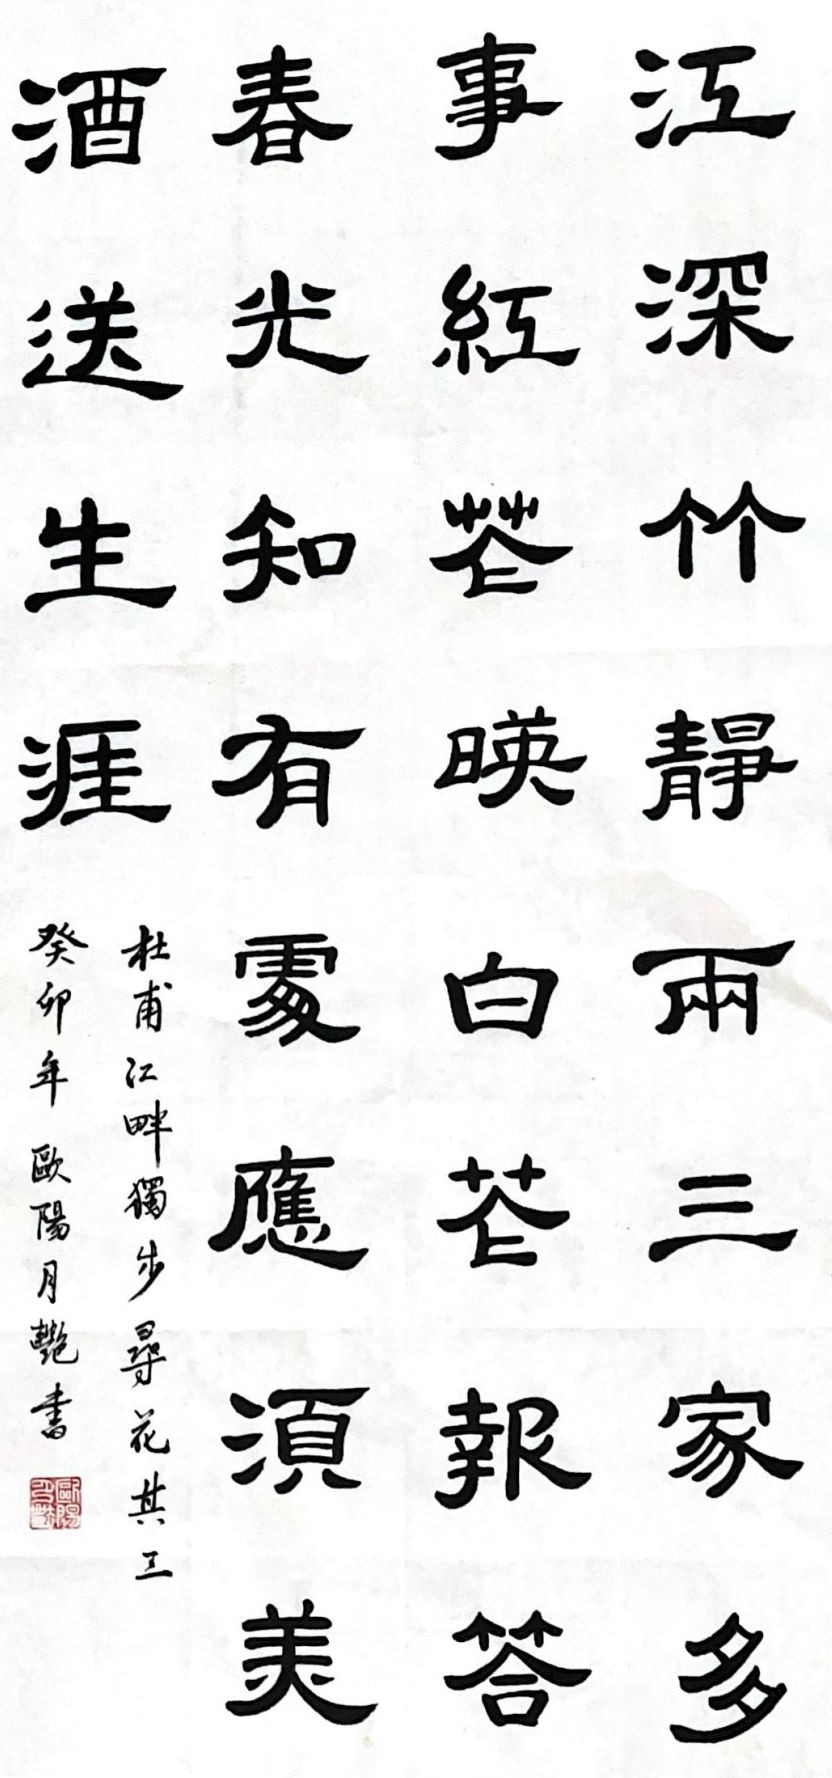 江深竹靜兩三家多
事紅花暎白花報答
春光知有處應須美
酒送生涯
杜甫江畔獨步尋花其三
癸卯年歐陽月艷書
歐陽月艷